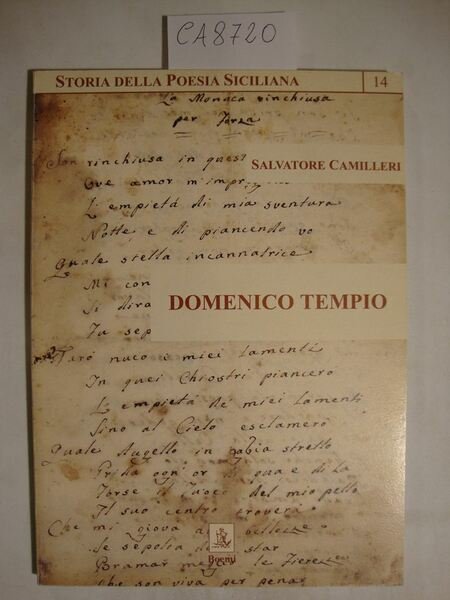 CA8720
STORIA DELLA POESIA SICILIANA
14
La Monaca rinchiusa
per Forza
SALVATORE CAMILLERI
Son rinchiusa in quest
Ove amor m'impr
L'empietá di mia sventura
Notte, e di piancendo vo
Quale stella incannatrice
Mi con
Si dira
Tu sep
DOMENICO TEMPIO
Farò nuco i miei lamenti
In quei Chiostri piancerò
L'empietá de' miei lamenti
Sino al Cielo esclamerò
Quale Augello in gabia stretto
Grida ogn'or di qua e di la
Forse il fuoco del mio petto
Il suo centro troverà
Che mi giova
bellezze
Se sepolta
star
Boemi
Bramar
le Fierezze
Che son viva per penar